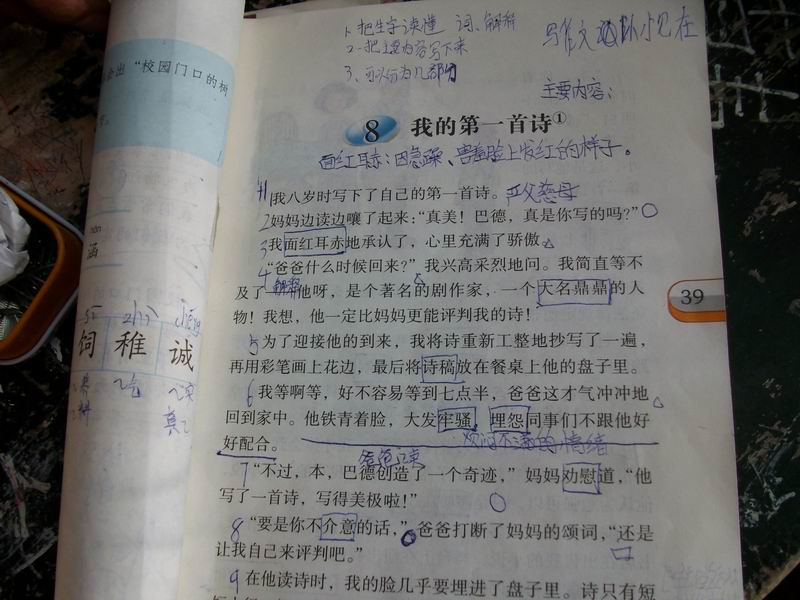 1、把生字读懂 词、解释
2、把主要内容写下来
3、可以分为几部分
主要内容：
会出“校园门口的树
8 我的第一首诗①
面红耳赤：因急躁、害羞脸上发红的样子。
1 我八岁时写下了自己的第一首诗。 严父慈母
2 妈妈边读边嚷了起来：“真美！巴德，真是你写的吗？”
3 我面红耳赤地承认了，心里充满了骄傲。
4 “爸爸什么时候回来？”我兴高采烈地问。我简直等不
及了——他呀，是个著名的剧作家，一个大名鼎鼎的人
物！我想，他一定比妈妈更能评判我的诗！
39
5 为了迎接他的到来，我将诗重新工整地抄写了一遍，
再用彩笔画上花边，最后将诗稿放在餐桌上他的盘子里。
6 我等啊等，好不容易等到七点半，爸爸这才气冲冲地
回到家中。他铁青着脸，大发牢骚，埋怨同事们不跟他好
好配合。 烦闷不满的情绪
7 “不过，本，巴德创造了一个奇迹，”妈妈劝慰道，“他
写了一首诗，写得美极啦！”
8 “要是你不介意的话，”爸爸打断了妈妈的颂词，“还是
让我自己来评判吧。”
9 在他读诗时，我的脸几乎要埋进了盘子里。诗只有短
hán
涵
饲 稚 诚